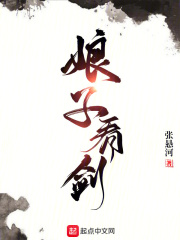 娘子看剑
张悬河
著
起点中文网